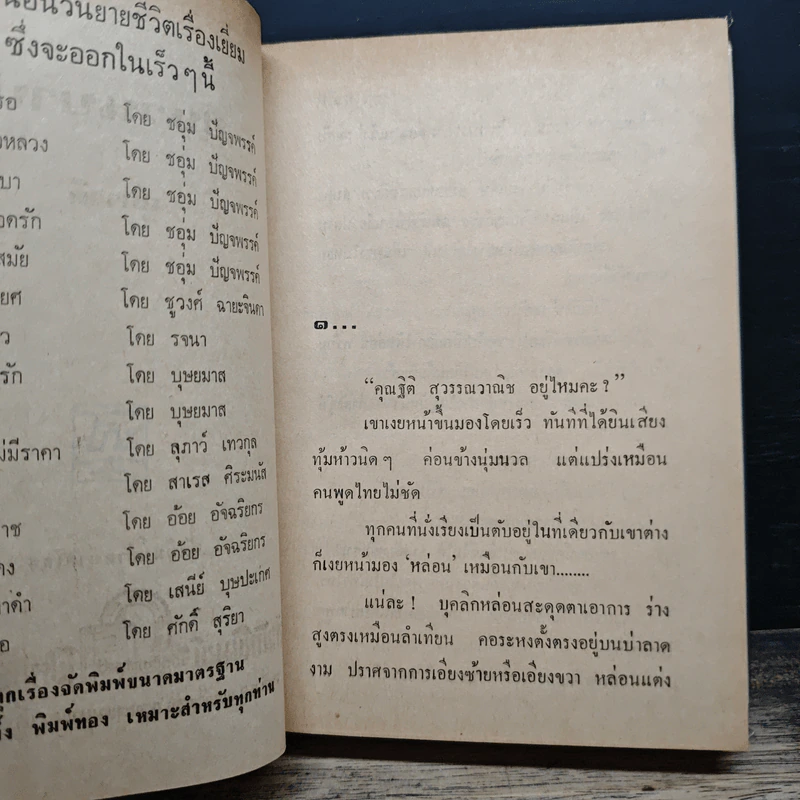 วนิยายชีวิตเรื่องเยี่ยม
ซึ่งจะออกในเร็วๆนี้
โดย ชอุ่ม ปัญจพรรค์
หลวง โดย ชอุ่ม ปัญจพรรค์
บา โดย ชอุ่ม ปัญจพรรค์
อดรัก โดย ชอุ่ม ปัญจพรรค์
สมัย โดย ชอุ่ม ปัญจพรรค์
ยศ โดย ชูวงศ์ ฉายะจินดา
ว โดย รจนา
รัก โดย บุษยมาส
โดย บุษยมาส
ม่มีราคา โดย สุภาว์ เทวกุล
โดย สาเรส ศิระมนัส
าช โดย อ้อย อัจฉริยกร
โดย อ้อย อัจฉริยกร
าดำ โดย เสนีย์ บุษปะเกศ
อ โดย ศักดิ์ สุริยา
ทุกเรื่องจัดพิมพ์ขนาดมาตรฐาน
พิมพ์ทอง เหมาะสำหรับทุกท่าน
๑...
“คุณฐิติ สุวรรณวาณิช อยู่ไหมคะ ?”
เขาเงยหน้าขึ้นมองโดยเร็ว ทันทีที่ได้ยินเสียง
ทุ้มห้าวนิดๆ ค่อนข้างนุ่มนวล แต่แปร่งเหมือน
คนพูดไทยไม่ชัด
ทุกคนที่นั่งเรียงเป็นตับอยู่ในที่เดียวกับเขาต่าง
ก็เงยหน้ามอง ‘หล่อน’ เหมือนกับเขา........
แน่ละ ! บุคลิกหล่อนสะดุดตาเอาการ ร่าง
สูงตรงเหมือนลำเทียน คอระหงตั้งตรงอยู่บนบ่าลาด
งาม ปราศจากการเอียงซ้ายหรือเอียงขวา หล่อนแต่ง